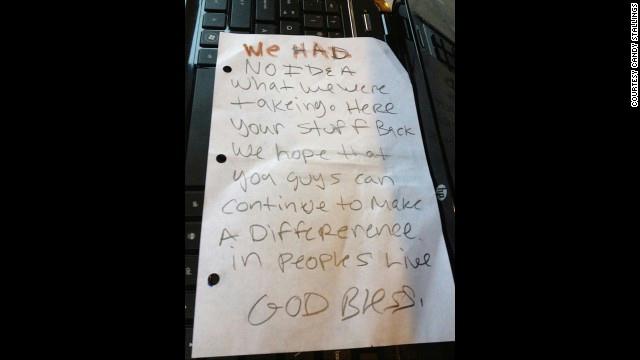 We HAD
NO IDEA
what we were
takeing. Here
your stuff Back
we hope that
you guys can
continue to Make
A DiffeRerence
in peoples Live
GOD Bless.
hp
COURTESY CANDY STALLINGS